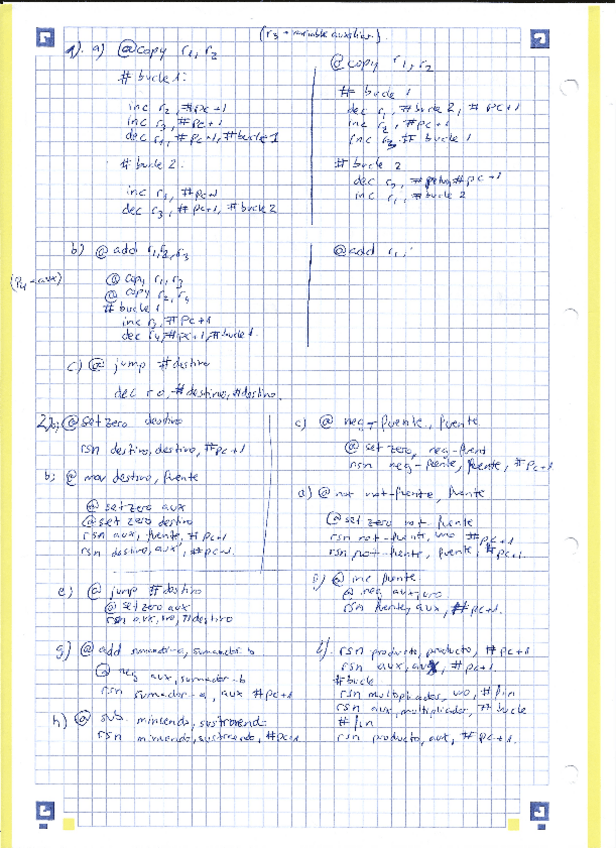 (r3 → variable auxiliar.)
1). a) @copy r1, r2
# bucle 1:
inc r2, #pc+1
inc r3, #pc+1
dec r1, #pc+1, #bucle 1
# bucle 2.
inc r1, #pc+1
dec r3, #pc+1, #bucle 2
@ copy r1, r2
# bucle 1
dec r1, #bucle 2, #pc+1
inc r2, #pc+1
inc r3, # bucle 1
# bucle 2
dec r3, #pc+1
inc r1, #bucle 2
b) @ add r1, r2, r3
(r4 → aux)
@ copy r1, r3
@ copy r2, r4
# bucle 1
inc r3, #pc+1
dec r4, #pc+1, #bucle 1.
@add r1,
c) @ jump #destino
dec r0, #destino, #destino.
2) a; @ set zero destino
rsn destino, destino, #pc+1
b; @ mov destino, fuente
@ set zero aux
@ set zero destino
rsn aux, fuente, #pc+1
rsn destino, aux, #pc+1.
c) @ neg-fuente, fuente
@ set zero, neg-fuent
rsn neg-fuente, fuente, #pc+1
d) @ not not-fuente, fuente
@ set zero not-fuente
rsn not-fuente, uno #pc+1
rsn not-fuente, fuente, #pc+1.
e) @ jump #destino
@ set zero aux
rsn aux, uno, #destino
@ inc fuente
@ neg aux, uno
rsn fuente, aux, #pc+1.
g) @ add sumador-a, sumador-b
@ neg aux, sumador-b
rsn sumador-a, aux #pc+1
h) @ sub. minuendo, sustraendo
rsn minuendo, sustraendo, #pc+1
rsn producto, producto, #pc+1
rsn aux, aux, #pc+1.
#bucle
rsn multiplicador, uno, #fin
rsn aux, multiplicador, #bucle
#fin
rsn producto, aux, #pc+1.